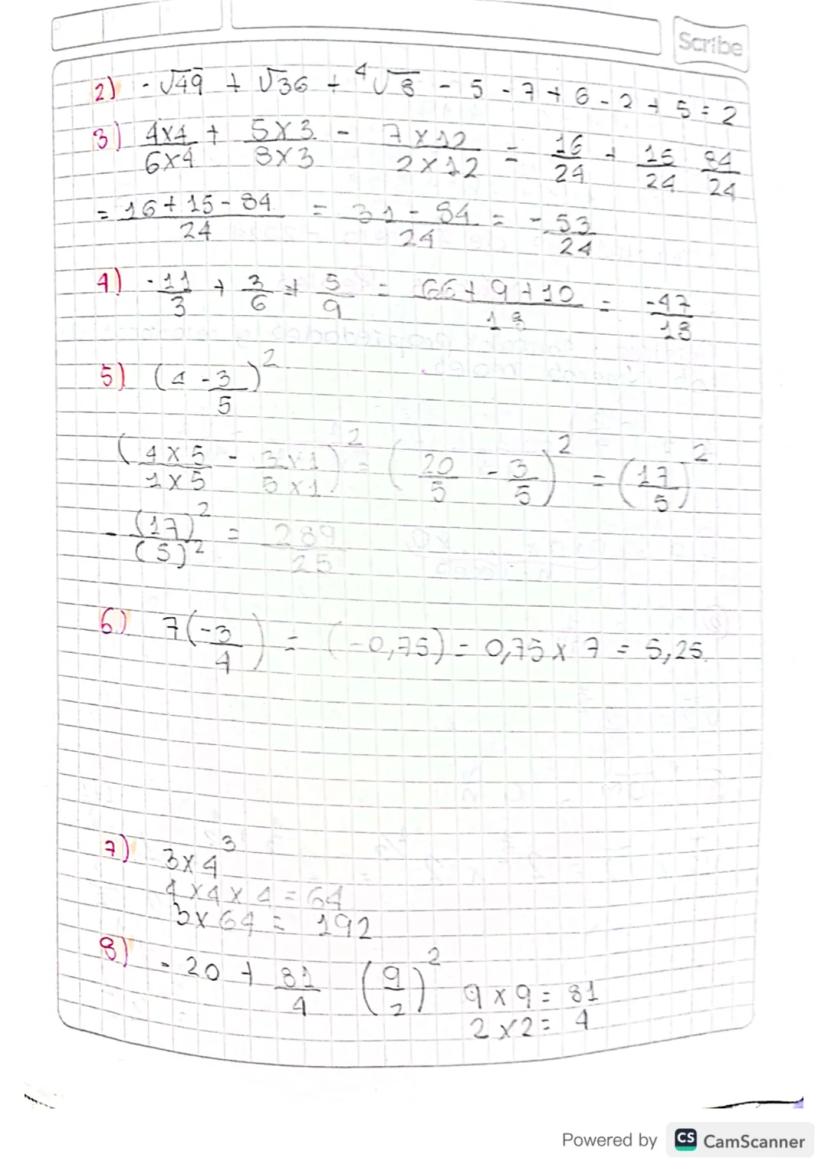 Scribe
2) -√49 + √36 + ⁴√8 - 5 - 7 + 6 - 2 + 5 = 2
3) 4x4/6x4 + 5x3/8x3 - 7x12/2x12 = 16/24 + 15/24 84/24
= 16+15-84/24 = 31-84/24 = -53/24
4) -11/3 + 3/6 + 5/9 = 66+9+10/18 = -47/18
5) (4 - 3/5)²
(4x5/1x5 - 3x1/5x1)² = (20/5 - 3/5)² = (17/5)²
- (17)²/(5)² = 289/25
6) 7(-3/4) = (-0,75) = 0,75 x 7 = 5,25
7) 3x4³
4x4x4 = 64
3x64 = 192
8) - 20 + 81/4 (9/2)² 9x9 = 81
2x2 = 4
Powered by CS CamScanner